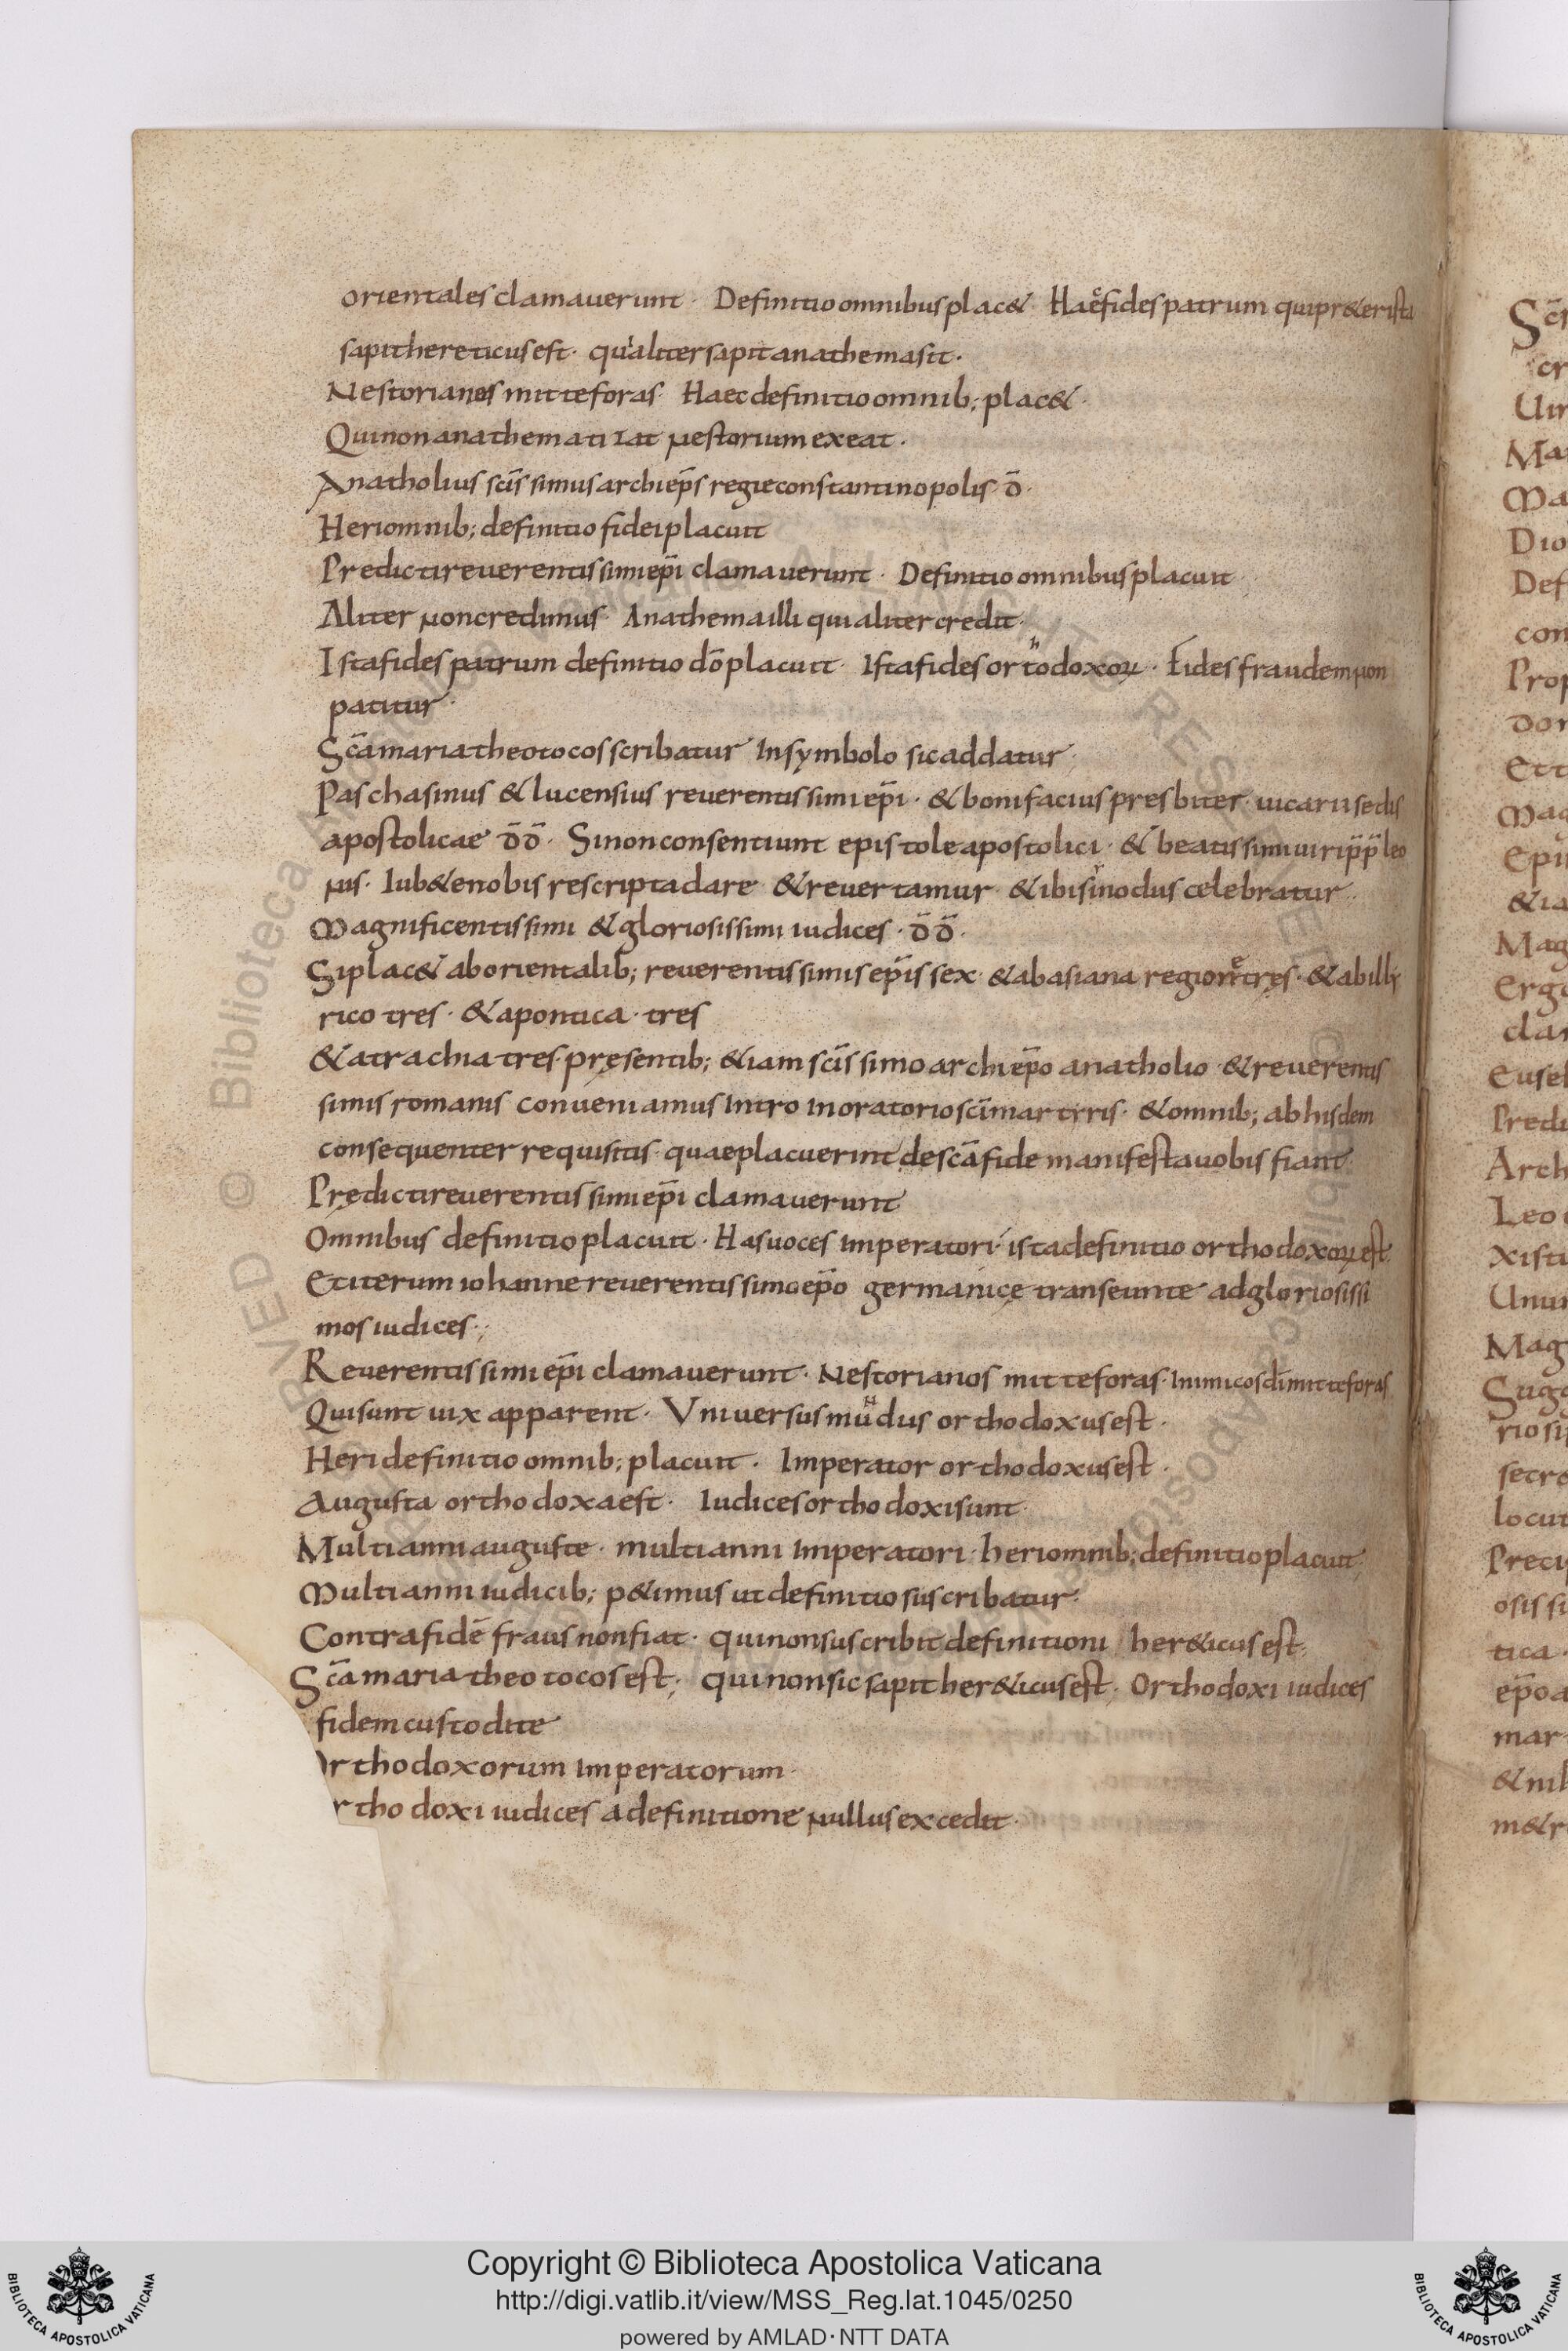 orientales clamauerunt · Definitio omnibus plac& · Haec fides patrum qui pr&er ista
sapit hereticus est · qui aliter sapit anathema sit ·
Nestorianos mitte foras · Haec definitio omnib; plac& ·
Qui non anathematizat nestorium exeat ·
Anatholius scīssimus archiep̄s regie constantinopolis · d̄ ·
Heri omnib; definitio fidei placuit
Predicti reuerentissimi ep̄i clamauerunt · Definitio omnibus placuit
Aliter non credimus · Anathema illi qui aliter credit ·
Ista fides patrum definitio dō placuit · Ista fides ortodoxoꝝ · Fides fraudem non
patitur ·
Scā maria theotocos scribatur In symbolo sic addatur
Paschasinus & lucensius reuerentissimi ep̄i · & bonifacius presbiter uicarii sedis
apostolicae d̄d̄ · Si non consentiunt epistole apostolici · & beatissimi uiri p̄p̄ leo
nis · Iub&e nobis rescripta dare & reuertamur & ibi sinodus celebratur
Magnificentissimi & gloriosissimi iudices · d̄d̄ ·
Si plac& ab orientalib; reuerentissimis ep̄is sex & ab asiana regione tres · & ab illy
rico tres · & a pontica · tres
& a trachia tres · pręsentib; &iam scīssimo archiep̄o anatholio & reuerentis
simis romanis conueniamus Intro In oratorio scī martyris · & omnib; ab hisdem
consequenter requisitis quae placuerint de scā fide manifesta uobis fiant
Prędicti reuerentissimi ep̄i clamauerunt
Omnibus definitio placuit · Has uoces imperatori ista definitio orthodoxoꝝ est
Et iterum iohanne reuerentissimo ep̄o germanicę transeunte ad gloriosissi
mos iudices ·;
Reuerentissimi ep̄i clamauerunt · Nestorianos mitte foras · Inimicos dī mitte foras
Qui sunt uix apparent · Vniuersus mundus orthodoxus est ·
Heri definitio omnib; placuit · Imperator orthodoxus est ·
Augusta orthodoxa est · Iudices orthodoxi sunt
Multi anni auguste · multi anni Imperatori · heri omnib; definitio placuit
Multi anni iudicib; p&imus ut definitio suscribatur ·
Contra fidē fraus non fiat · qui non suscribit definitioni her&icus est
Scā maria theotocos est; qui non sic sapit her&icus est · Orthodoxi iudices
fidem custodite
Orthodoxorum Imperatorum
rthodoxi iudices a definitione nullus excedit ·
Copyright © Biblioteca Apostolica Vaticana
http://digi.vatlib.it/view/MSS_Reg.lat.1045/0250
powered by AMLAD·NTT DATA
BIBLIOTECA APOSTOLICA VATICANA
BIBLIOTECA APOSTOLICA VATICANA